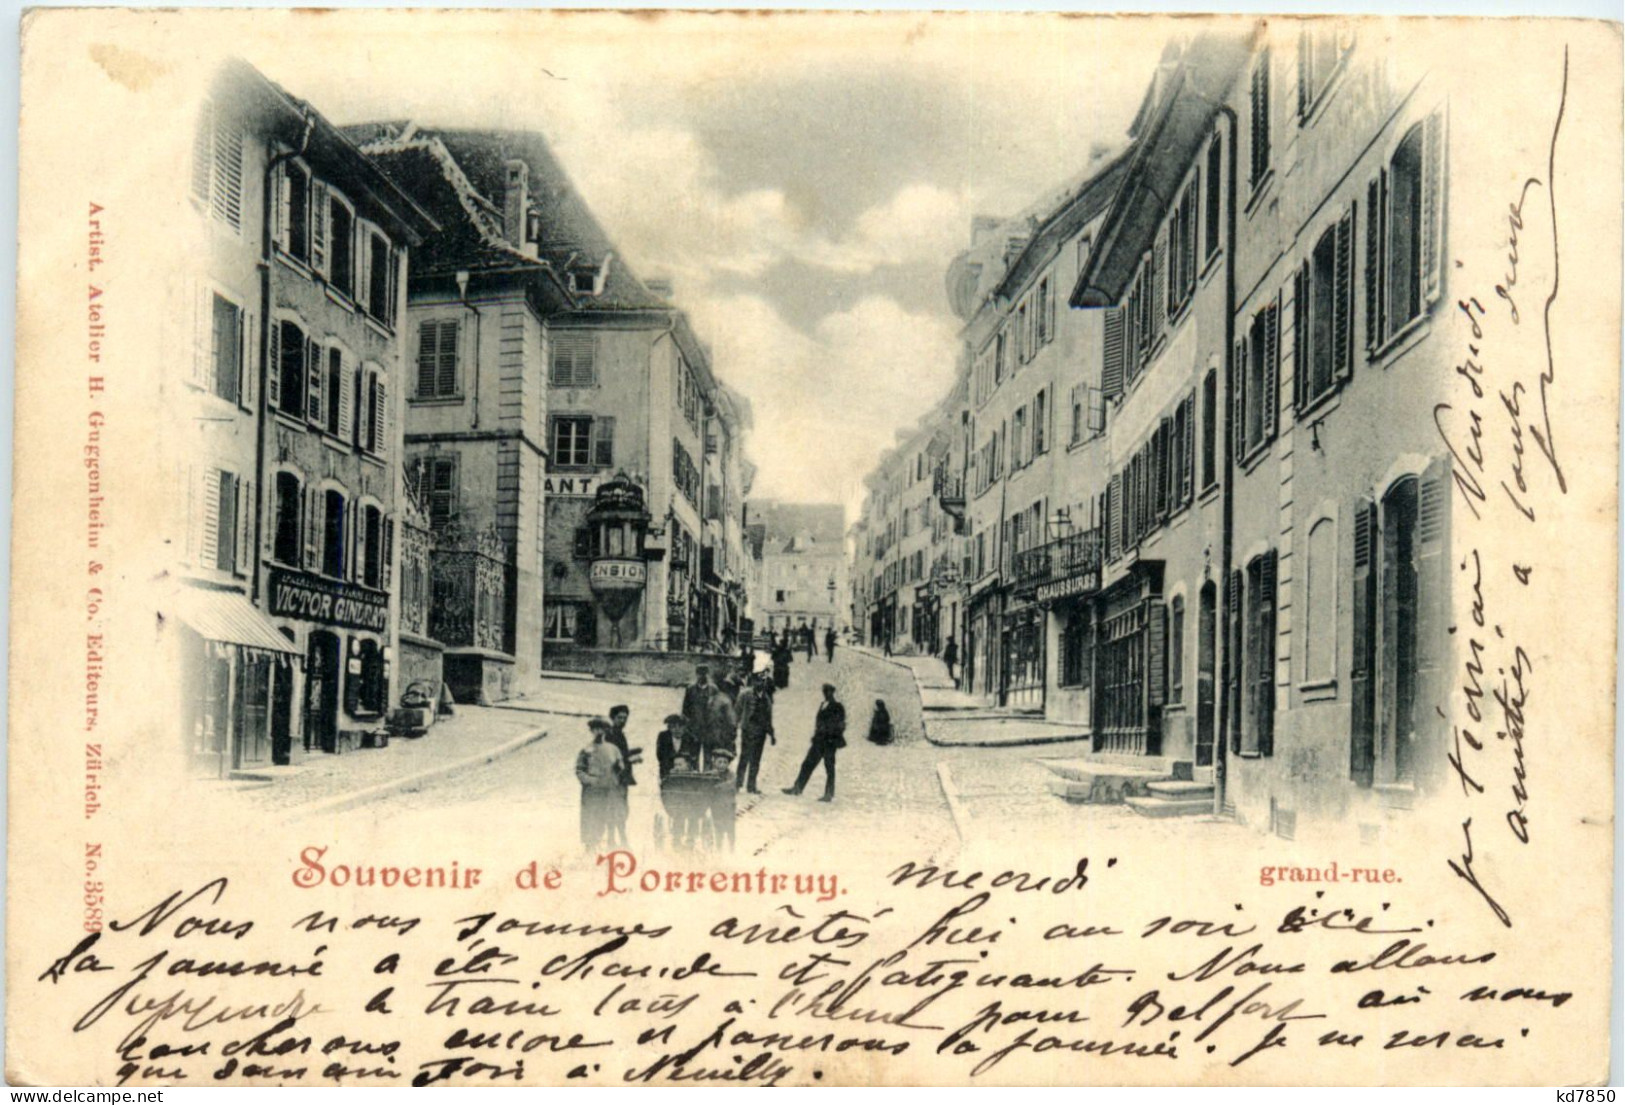 Artist. Atelier H. Guggenheim & Co. Editeurs, Zürich. No. 3589
VICTOR GINDRAT
ANT
ENSION
CHAUSSURES
Souvenir de Porrentruy.
grand-rue.
Nous nous sommes arrêtés hier au soir ici.
la journée a été chaude et fatiguante. Nous allons
reprendre le train tout à l'heure pour Belfort où nous
coucherons encore et passerons la journée. Je ne serai
que demain soir à Neuilly.
Vendredi
amitiés a toutes deux
kd7850